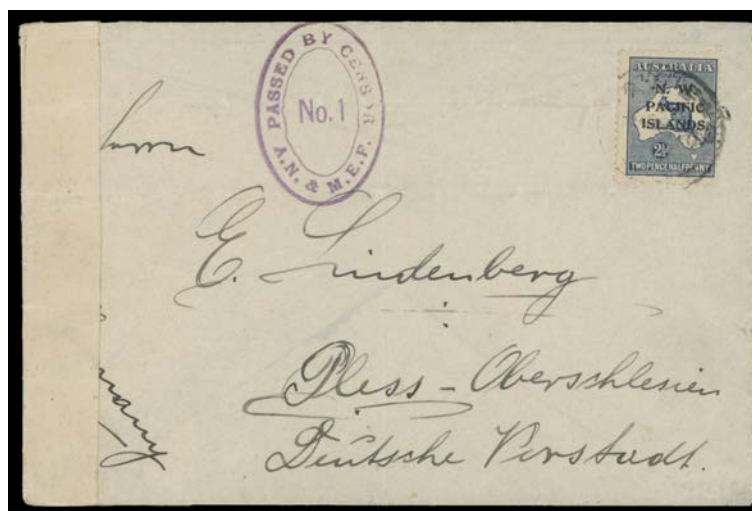 PASSED BY CENSOR
No. 1
A.N. & M.E.F.
AUSTRALIA
N. W.
PACIFIC
ISLANDS.
2½
TWO PENCE HALFPENNY
Herrn
E. Lindenberg
Pless - Oberschlesien
Deutsche Vorstadt.